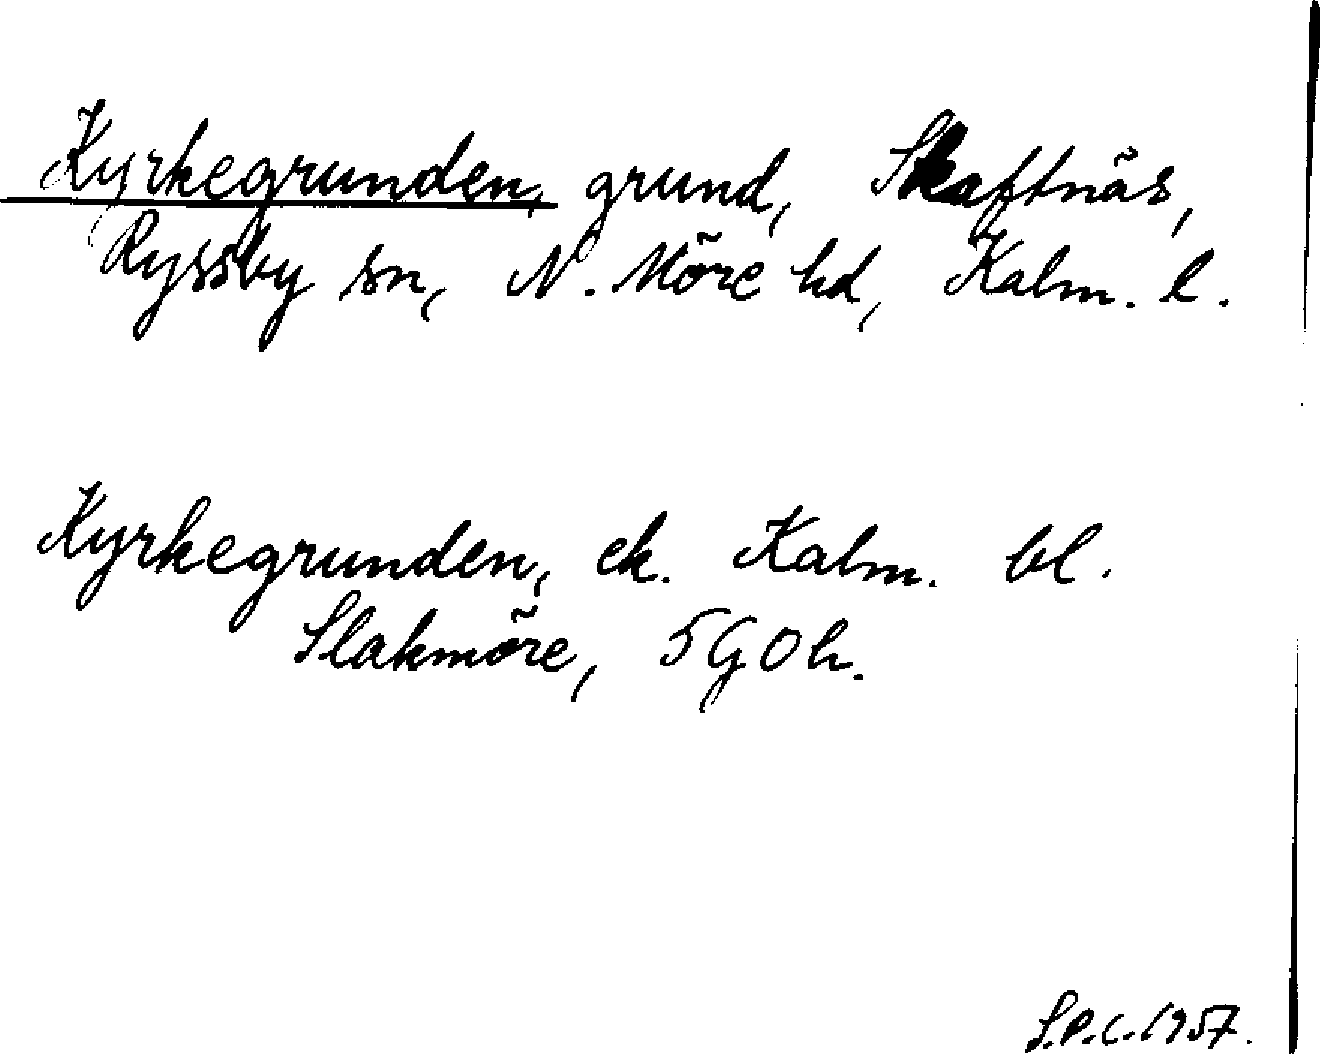 Kyrkegrunden, grund, Skaftnäs,
Ryssby sn, N. Möre hd, Kalm. l.
Kyrkegrunden, ek. Kalm. bl.
Slakmöre, 5G0h.
S.P.C. 1957.